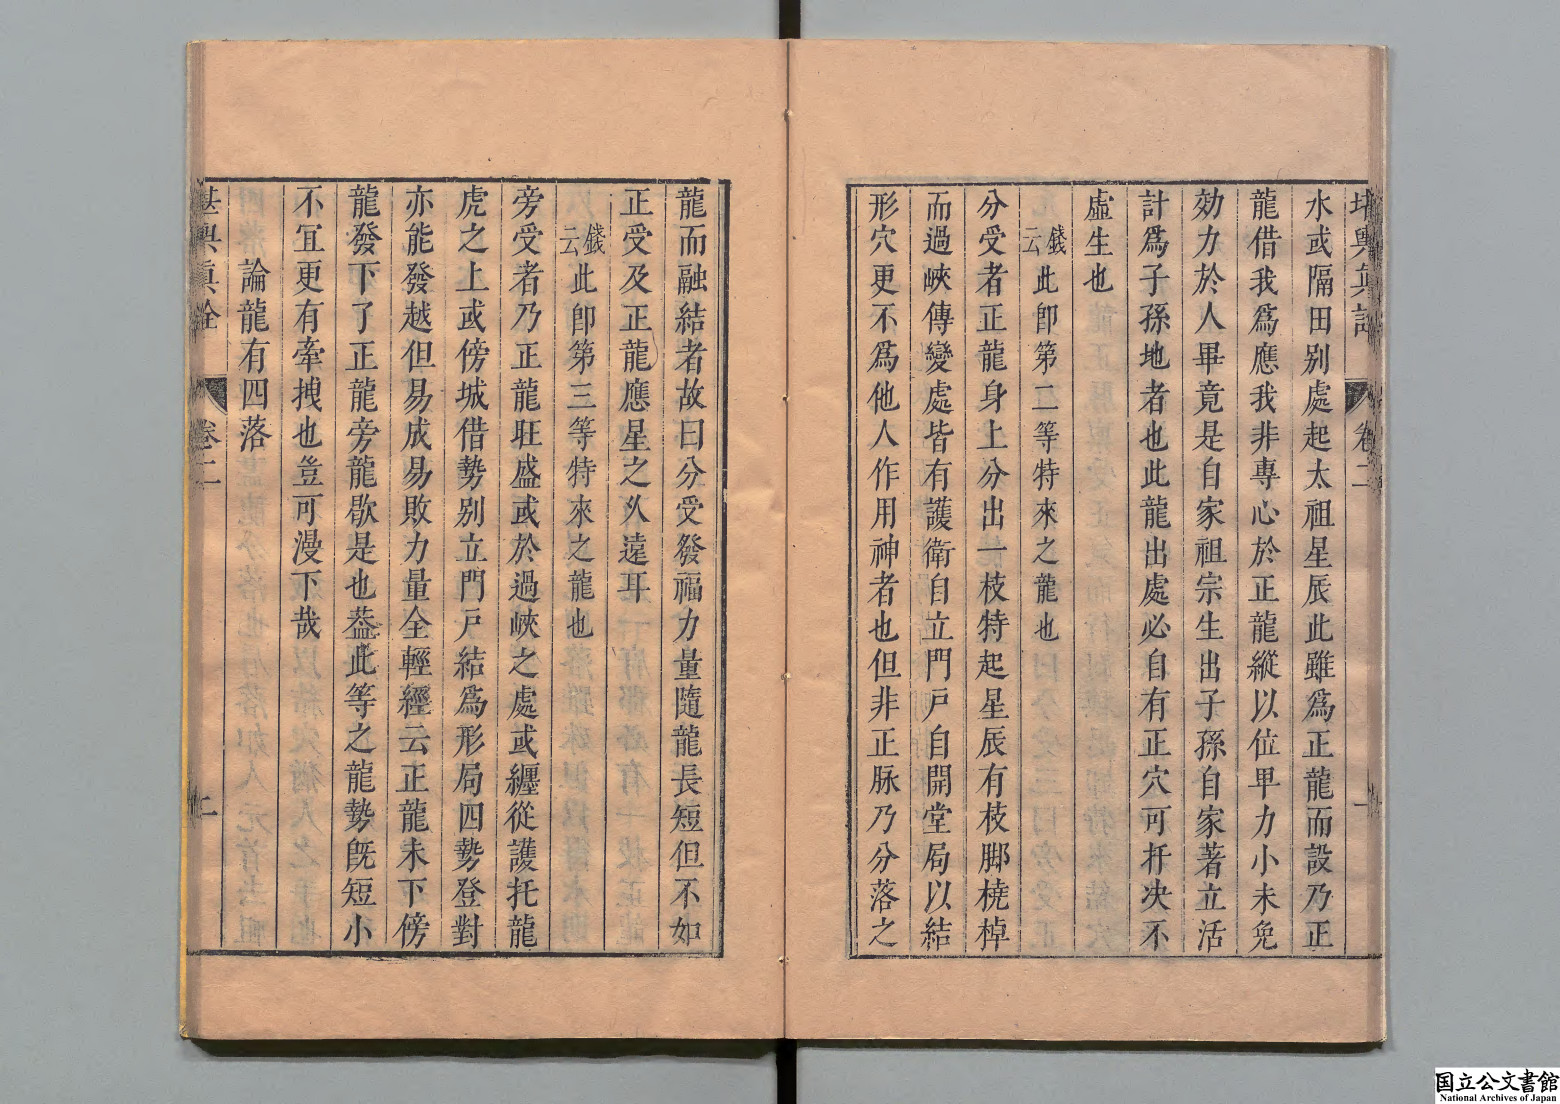 堪輿真詮 卷二 一
水或隔田别處起太祖星辰此雖爲正龍而設乃正
龍借我爲應我非專心於正龍縱以位卑力小未免
効力於人畢竟是自家祖宗生出子孫自家著立活
計爲子孫地者也此龍出處必自有正穴可扦决不
虛生也
錢云此卽第二等特來之龍也
分受者正龍身上分出一枝特起星辰有枝脚橈棹
而過峽傳變處皆有護衛自立門戸自開堂局以結
形穴更不爲他人作用神者也但非正脉乃分落之
龍而融結者故曰分受發福力量隨龍長短但不如
正受及正龍應星之久遠耳
錢云此卽第三等特來之龍也
旁受者乃正龍旺盛或於過峽之處或纒從護托龍
虎之上或傍城借勢别立門戸結爲形局四勢登對
亦能發越但易成易敗力量全輕經云正龍未下傍
龍發下了正龍旁龍歇是也葢此等之龍勢旣短小
不冝更有牽拽也豈可漫下哉
論龍有四落
堪輿眞詮 卷二 二
国立公文書館
National Archives of Japan